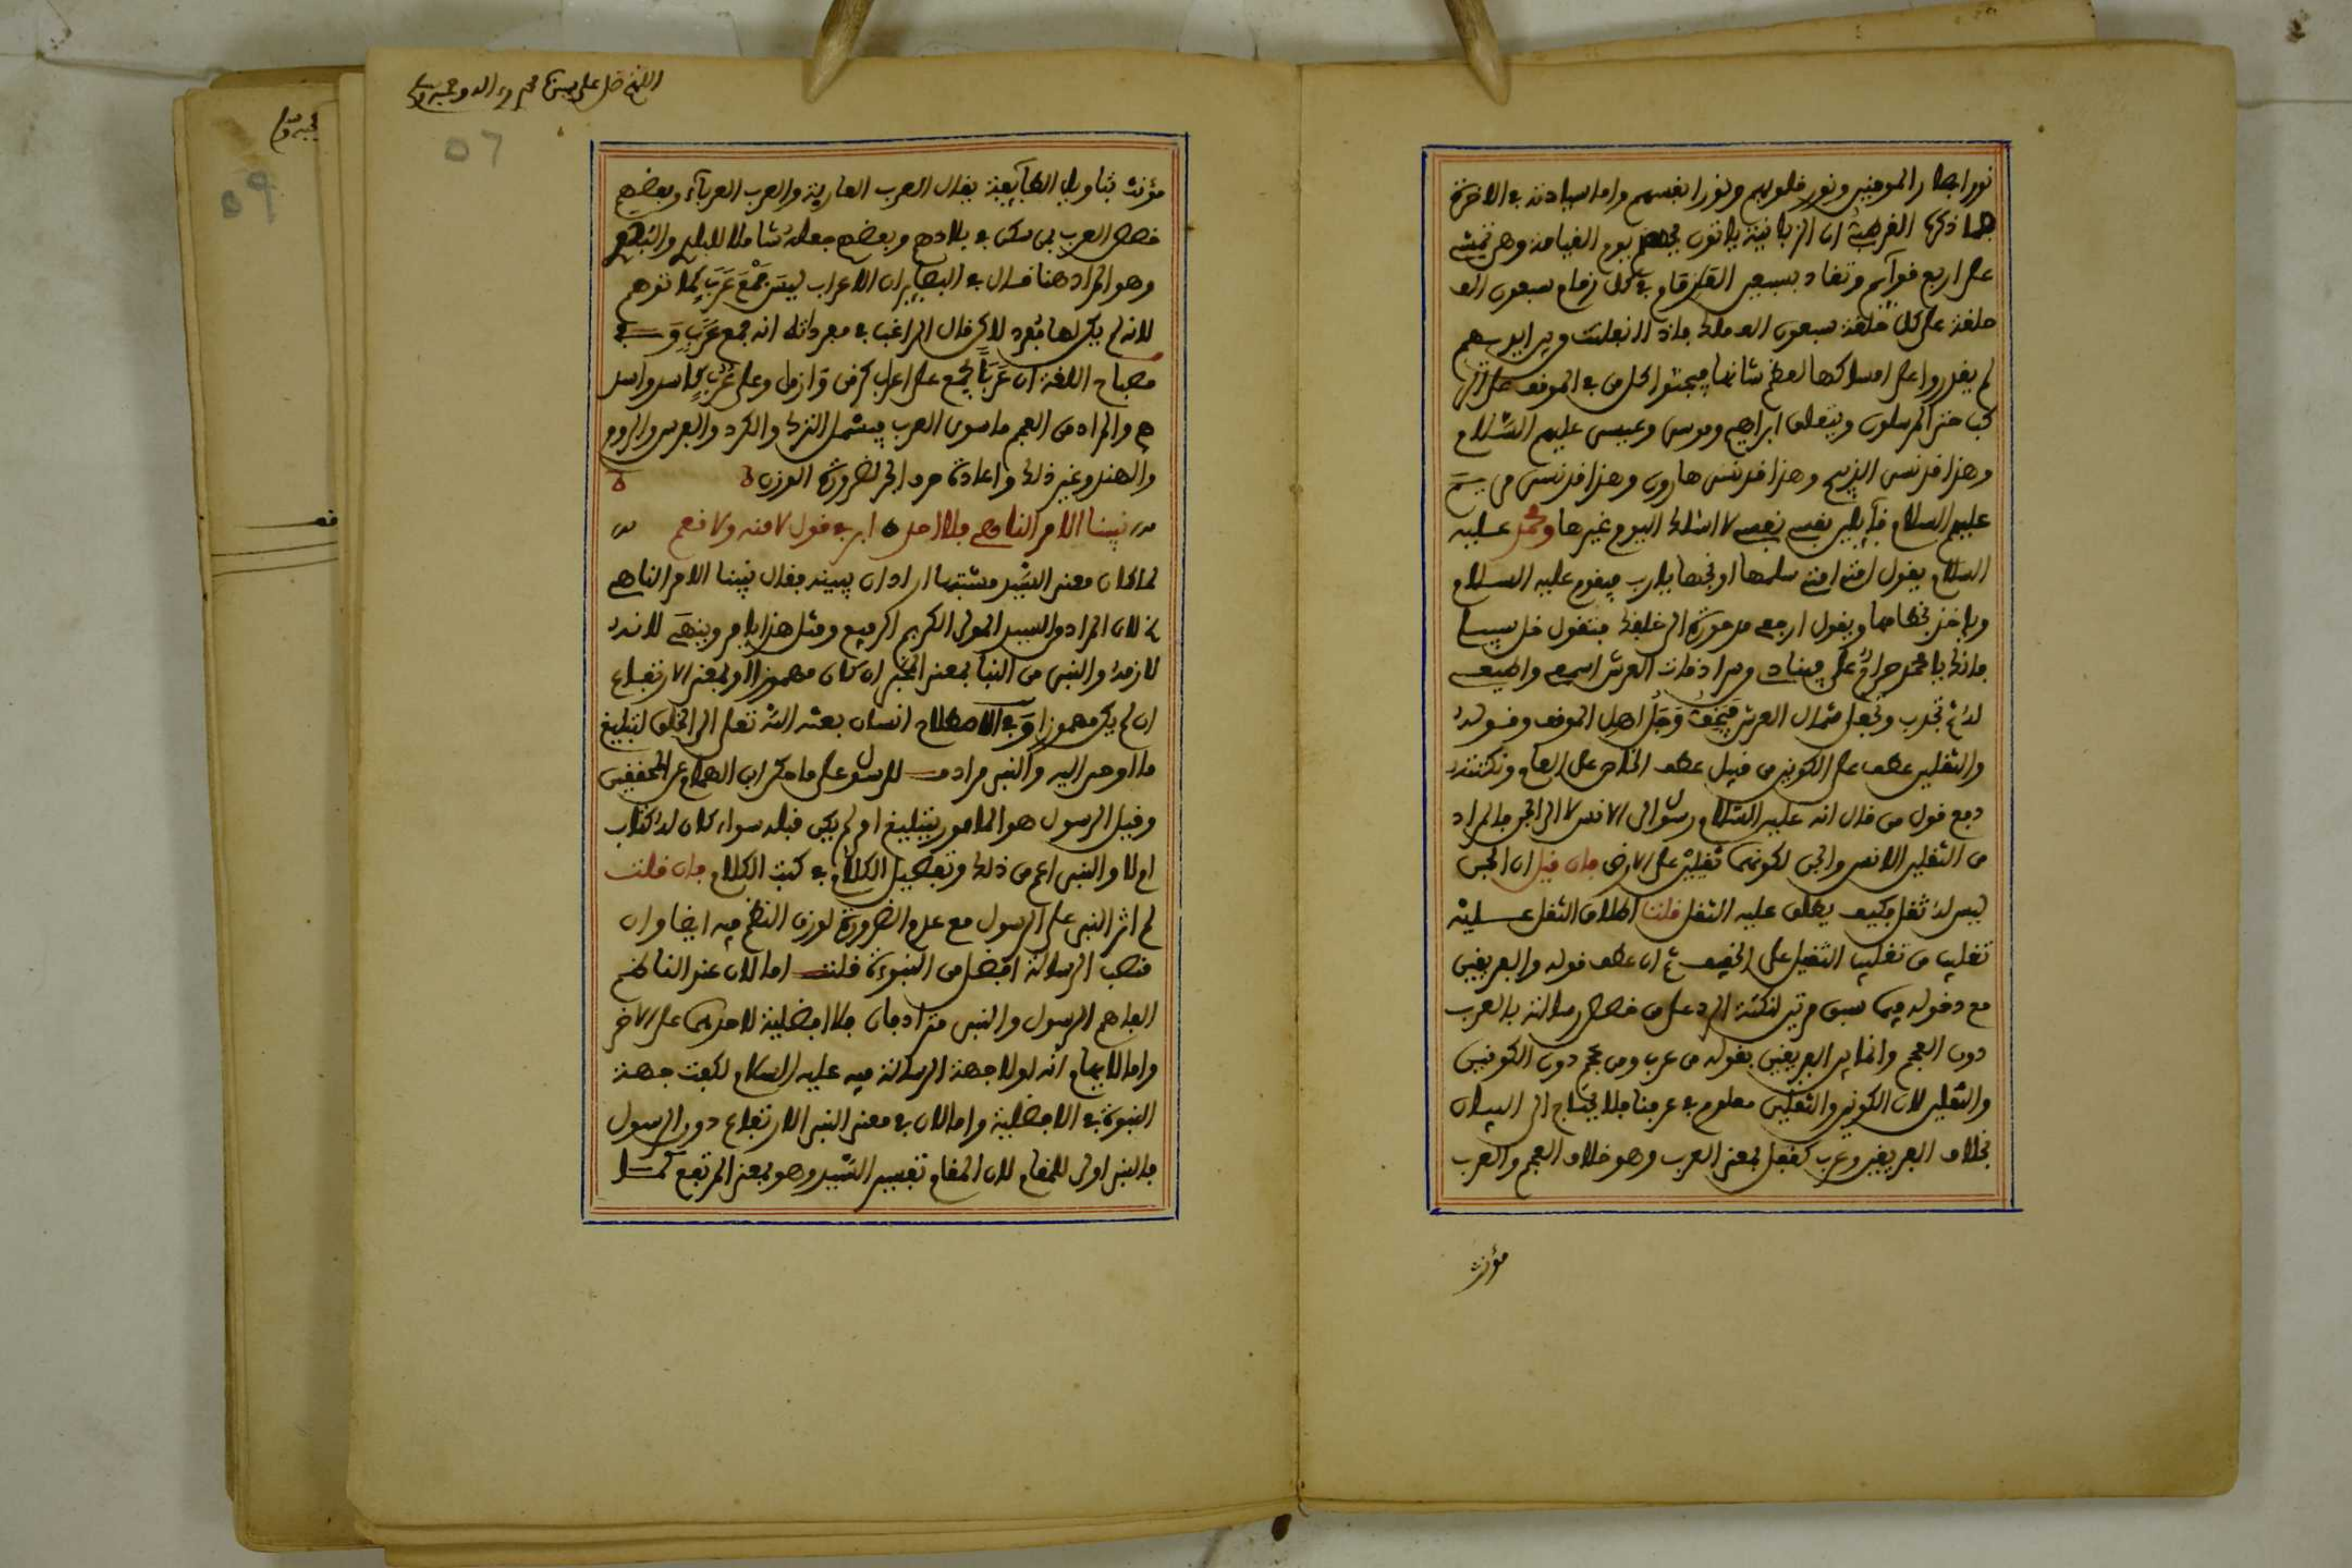 نور ابصار المومنين ونور قلوبهم ونور انفسهم واما سيادته في الاخرة
فما ذكره القرطبي ان الزبانية ياتون بجهنم يوم القيامة وهي تمشي
على اربع قوآيم وتقاد بسبعين الف زمام في كل زمام سبعون الف
حلقة على كل حلقة سبعون الف ملك فاذا انفلتت من ايديهم
لم يقدروا على امساكها لعظم شانها فيجثوا كل من في الموقف على
حتى المرسلون ويتعلق ابراهيم وموسى وعيسى عليهم السلام
وهذا قد نسي الذبيح وهذا قد نسي هارون وهذا قد نسي مريم
عليهم السلام قآيلين نفسي نفسي لا اسئلك اليوم غيرها ومحمد عليه
السلام يقول امتي امتي سلمها ونجها يارب فيقوم عليه السلام
وياخذ بخطامها ويقول ارجعي مدحورة الى خلفك فتقول خل سبيلي
فانك يا محمد حرام علي فينادى من سرادقات العرش اسمعي واطيعي
له ثم تجذب وتجعل شمال العرش فيخف وجل اهل الموقف وقوله
والثقلين عطف على الكونين من قبيل عطف الخاص على العام ونكتته
دفع قول من قال انه عليه السلام رسول الى الانس لا الى الجن فالمراد
من الثقلين الانس والجن لكونهما ثقيلين على الارض فان قيل ان الجن
ليس له ثقل فكيف يطلق عليه الثقل قلنا اطلاق الثقل عليه
تغليب من تغليب الثقيل على الخفيف ثم ان عطف قوله والفريقين
مع دخوله فيما سبق مرتين لنكتة الرد على من خصص رسالته بالعرب
دون العجم وانما بين الفريقين بقوله من عرب ومن عجم دون الكونين
والثقلين لان الكونين والثقلين معلوم في عرفنا فلا يحتاج الى البيان
بخلاف الفريقين وعرب كقفل بمعنى العرب وهو خلاف العجم والعرب
مؤنث
اللهم صل على سيدنا محمد وءاله وصحبه وسلم
57
مؤنث بتاويل الطآيفة يقال العرب العاربة والعرب العربآء وبعضهم
خصص العرب بمن سكن في بلادهم وبعضهم جعله شاملا للبلد والبقع
وهو المراد هنا قال في البصاير ان الاعراب ليس جمع عرب كما توهم
لانه لم يكن لها مفرد لاكن قال الراغب في مفرداته انه جمع عرب وفي
مصباح اللغة ان عربا يجمع على اعراب كزمن وازمن وعلى عرب كاسد واسد
هـ والمراد من العجم ما سوى العرب فيشمل الترك والكرد والفرس والروم
والهند وغير ذلك واعادة حرف الجر لضرورة الوزن
نبينا الامر الناهي فلا احد ابر في قول لا منه ولا نعم
لما كان معنى السيد مشتبها اراد ان يبينه فقال نبينا الامر الناهي
لان المراد من السيد المولى الكريم الرفيع ومثل هذا يامر وينهى لانه
لازمه والنبي من النبا بمعنى الخبر ان كان مهموزا او بمعنى الارتفاع
ان لم يكن مهموزا وفي الاصطلاح انسان بعثه الله تعلى الى الخلق لتبليغ
ما اوحي اليه والنبي مرادف للرسول على ما ذكر ابن الهمام عن المحققين
وقيل الرسول هو المامور بتبليغ او لم يكن قبله سواء كان له كتاب
او لا والنبي اعم من ذلك وتفصيل الكلام في كتب الكلام فان قلت
لم اثر النبي على الرسول مع عدم الضرورة لوزن النظم فيه ايضا وان
منصب الرسالة افضل من النبوءة قلت اما لان عند الناظم
الفاهم الرسول والنبي مترادفان فلا افضلية لاحدهما على الاخر
واما لايهام انه لولا جهة الرسالة فيه عليه السلام لكفت جهة
النبوة في الافضلية واما لان في معنى النبي الارتفاع دون الرسول
فالنبي اولى للمقام لان المقام تفسير السيد وهو بمعنى المرتفع كما
59